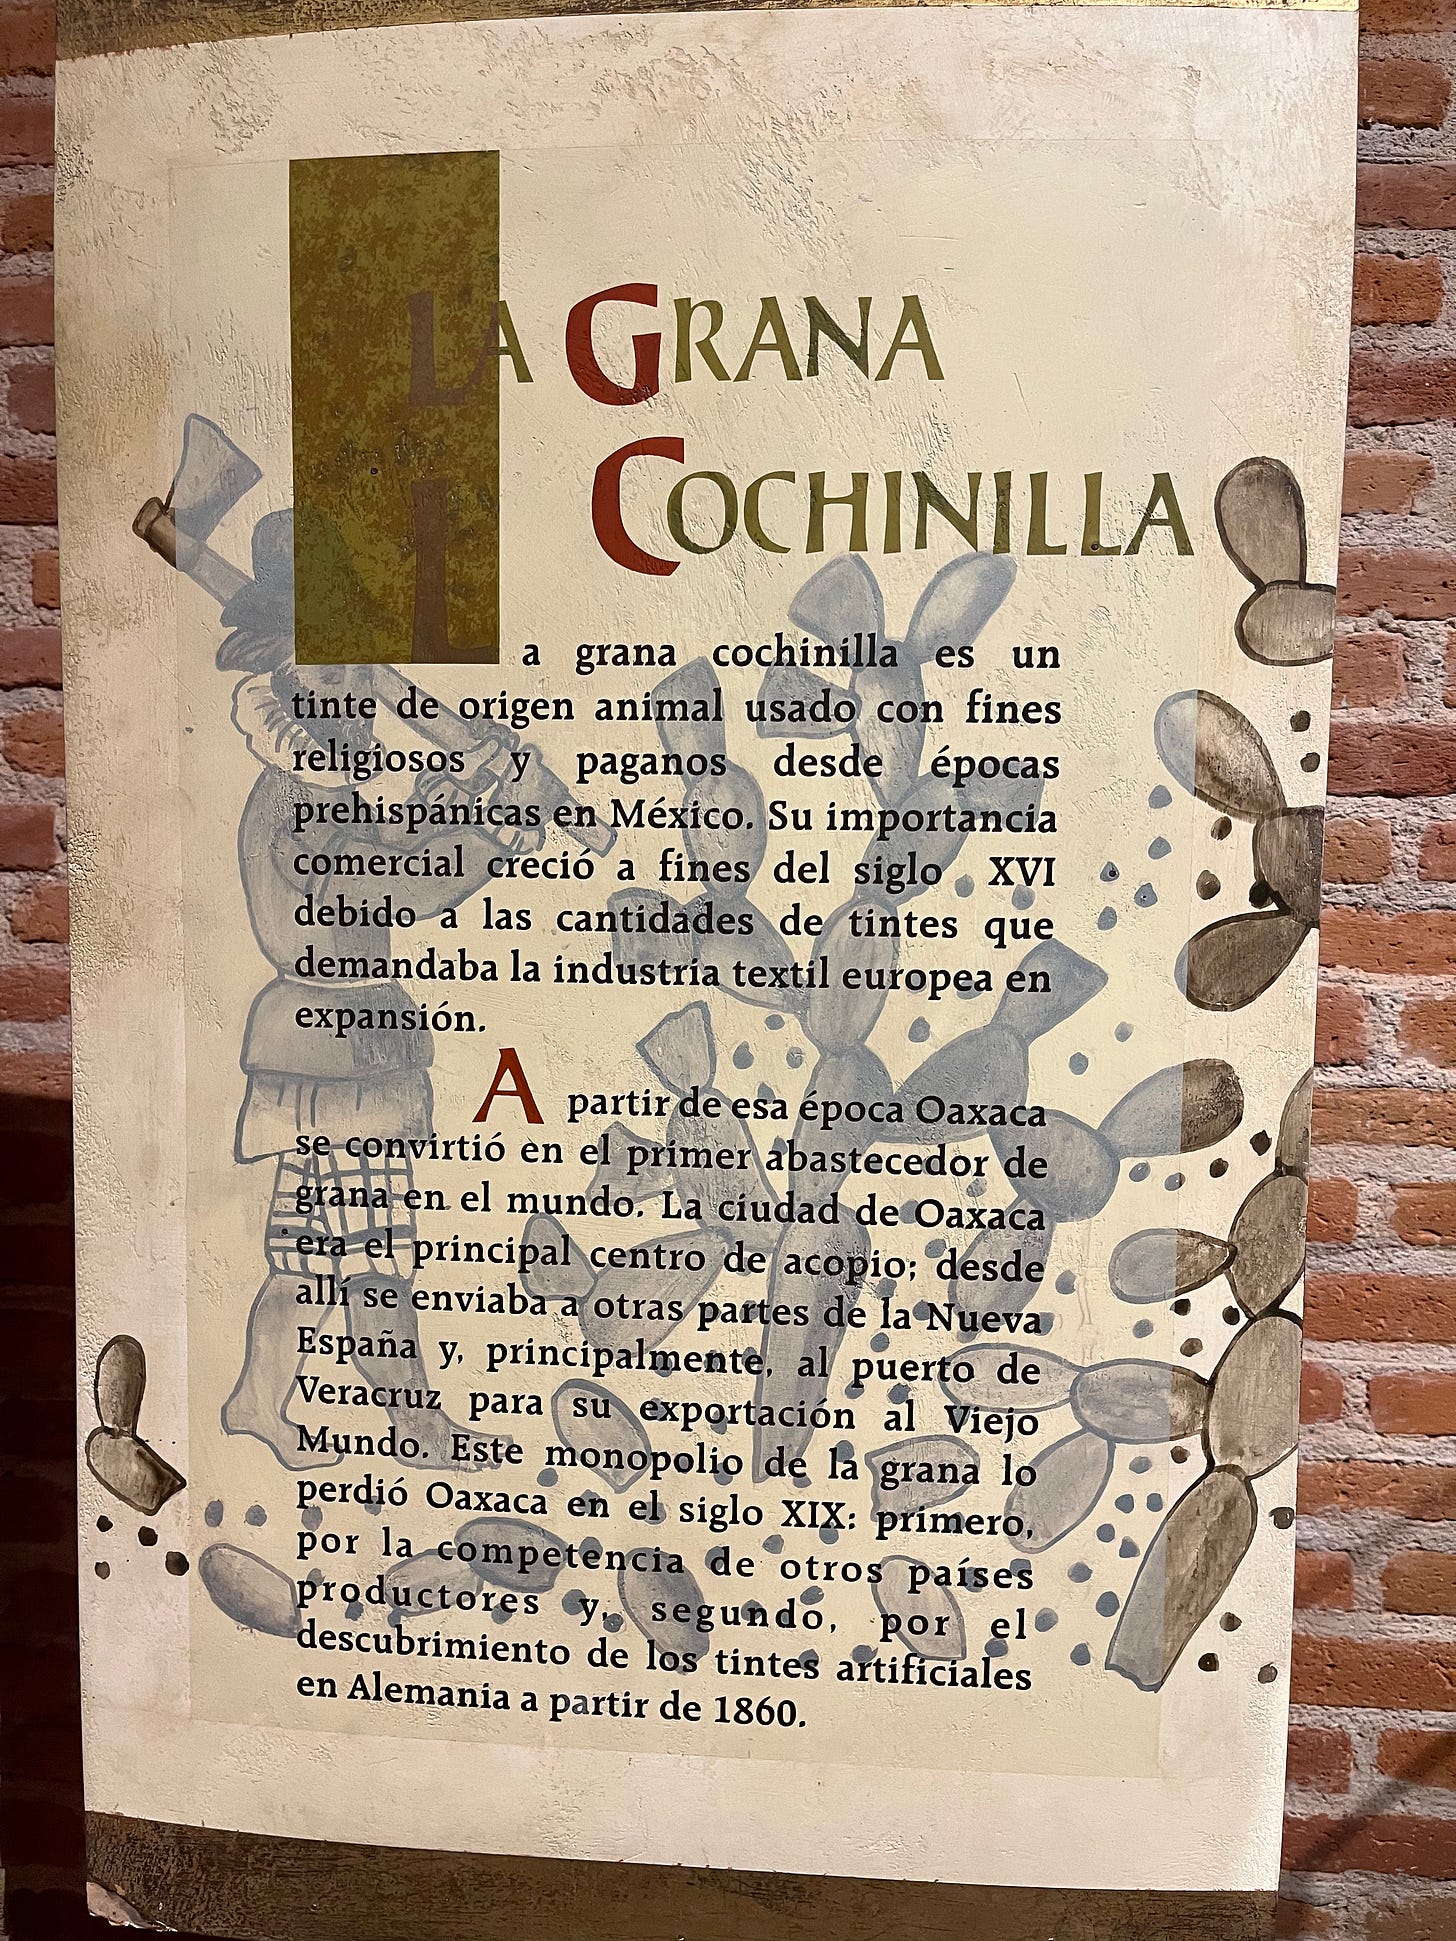 LA GRANA
COCHINILLA
La grana cochinilla es un
tinte de origen animal usado con fines
religiosos y paganos desde épocas
prehispánicas en México. Su importancia
comercial creció a fines del siglo XVI
debido a las cantidades de tintes que
demandaba la industria textil europea en
expansión.
A partir de esa época Oaxaca
se convirtió en el primer abastecedor de
grana en el mundo. La ciudad de Oaxaca
era el principal centro de acopio; desde
allí se enviaba a otras partes de la Nueva
España y, principalmente, al puerto de
Veracruz para su exportación al Viejo
Mundo. Este monopolio de la grana lo
perdió Oaxaca en el siglo XIX: primero,
por la competencia de otros países
productores y, segundo, por el
descubrimiento de los tintes artificiales
en Alemania a partir de 1860.